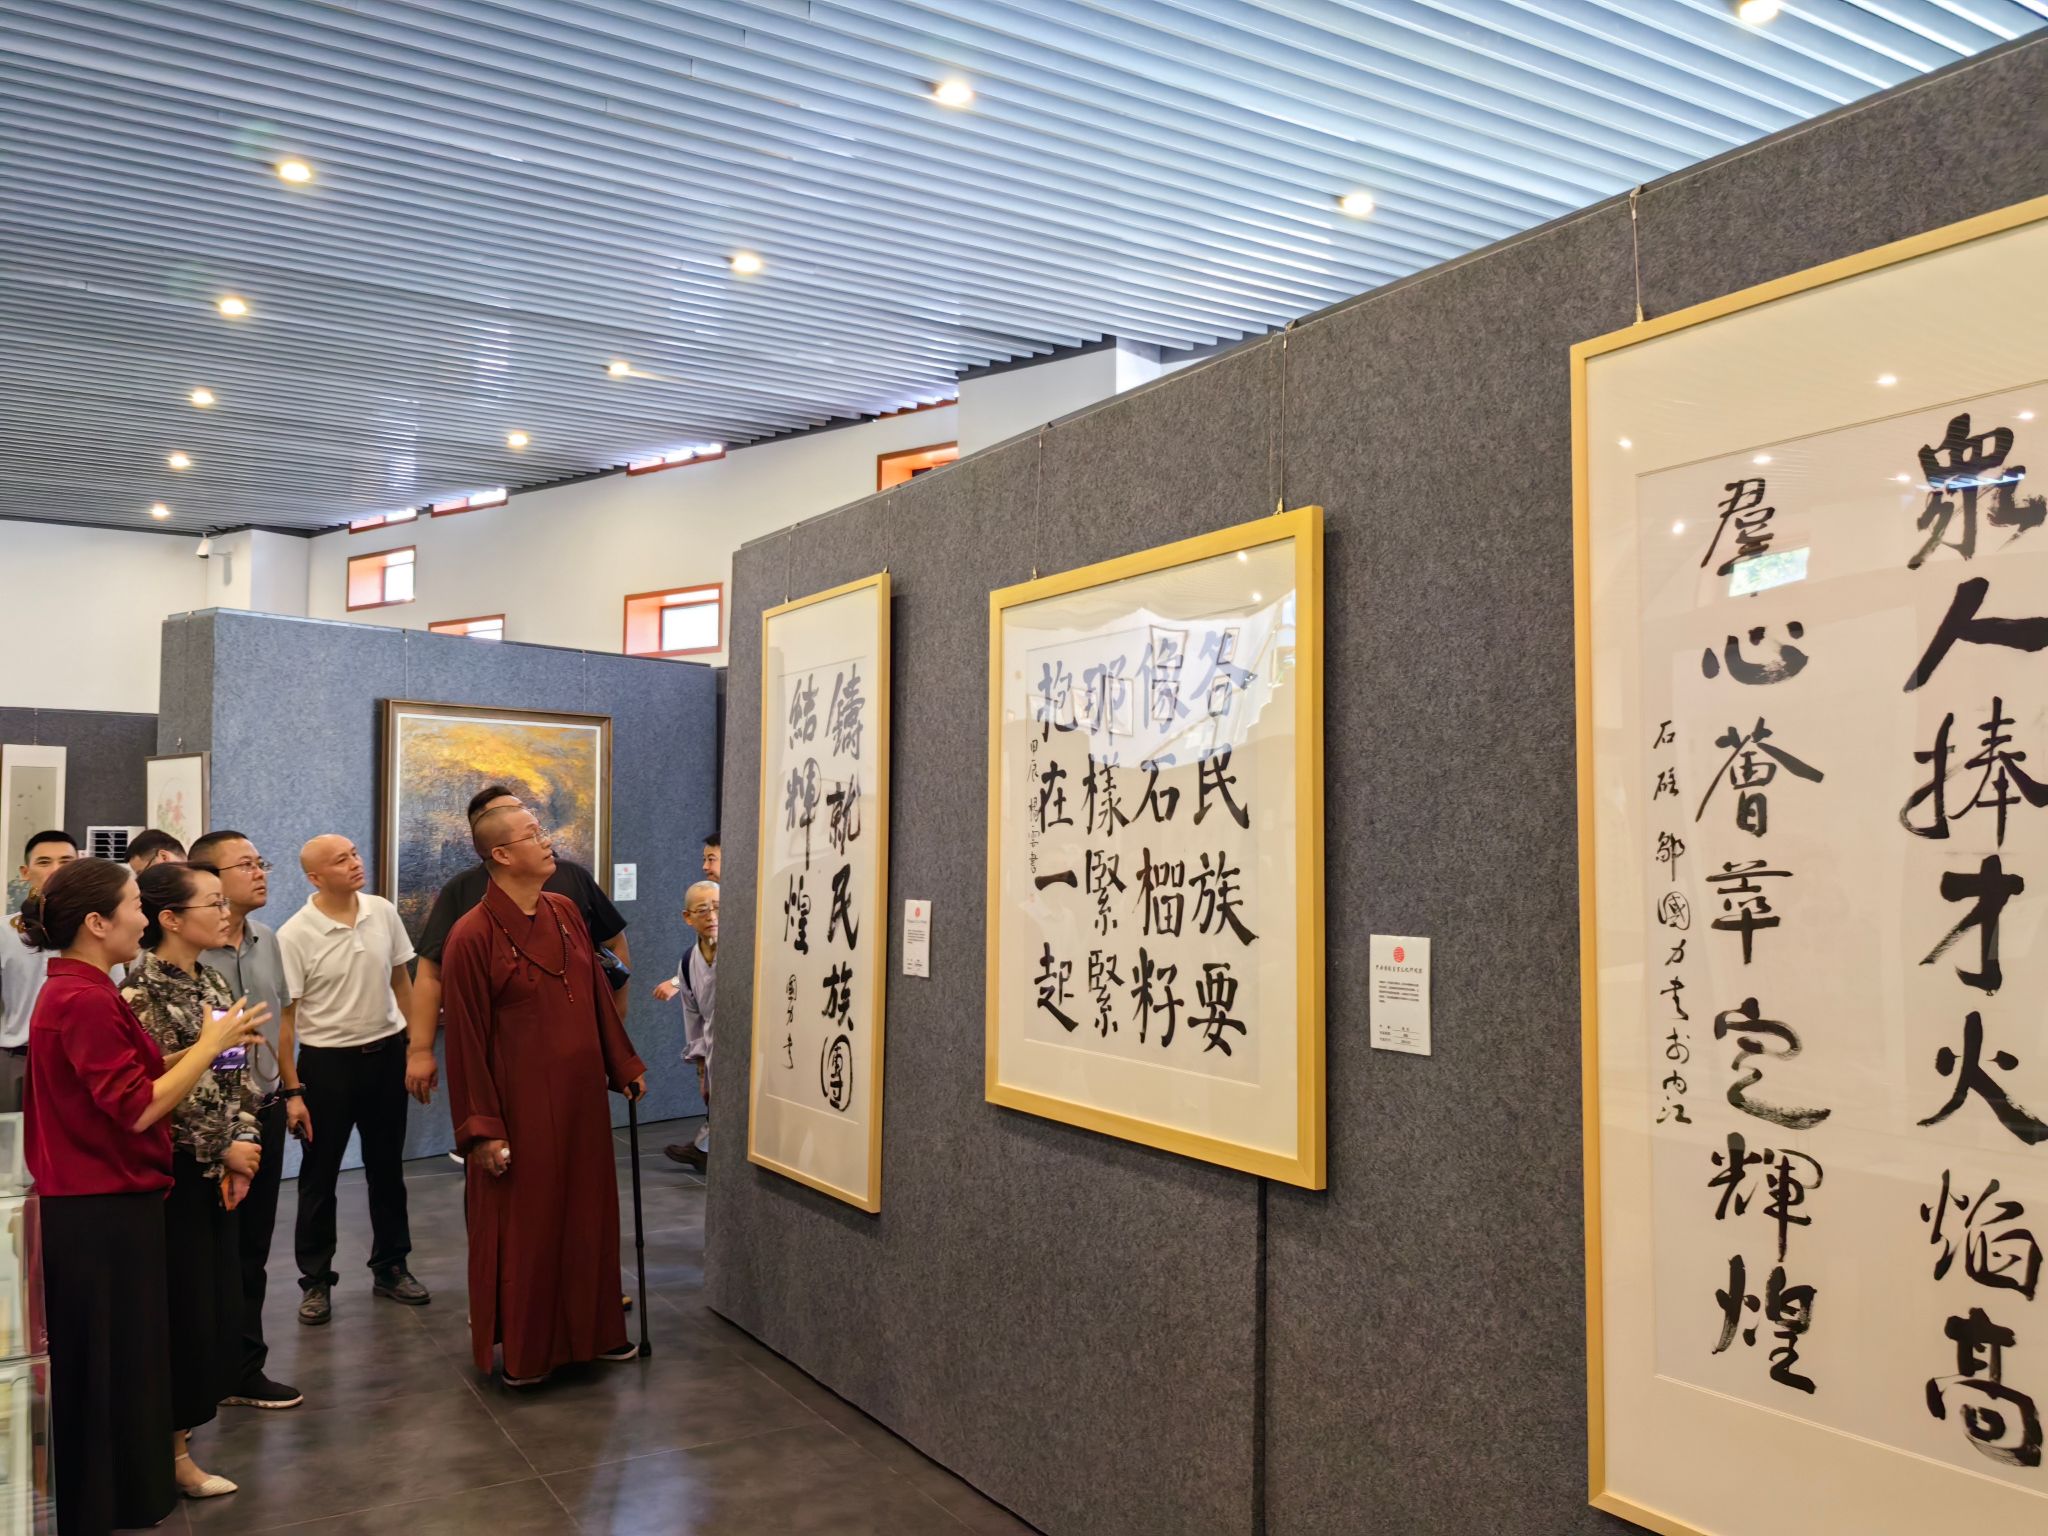 眾人捧才火焰高
羣心薈萃定輝煌
石硅 鄒國力書於內江
各民族要
像石榴籽
那樣緊緊
抱在一起
甲辰 楊雲書
鑄就民族團
結輝煌
國力書